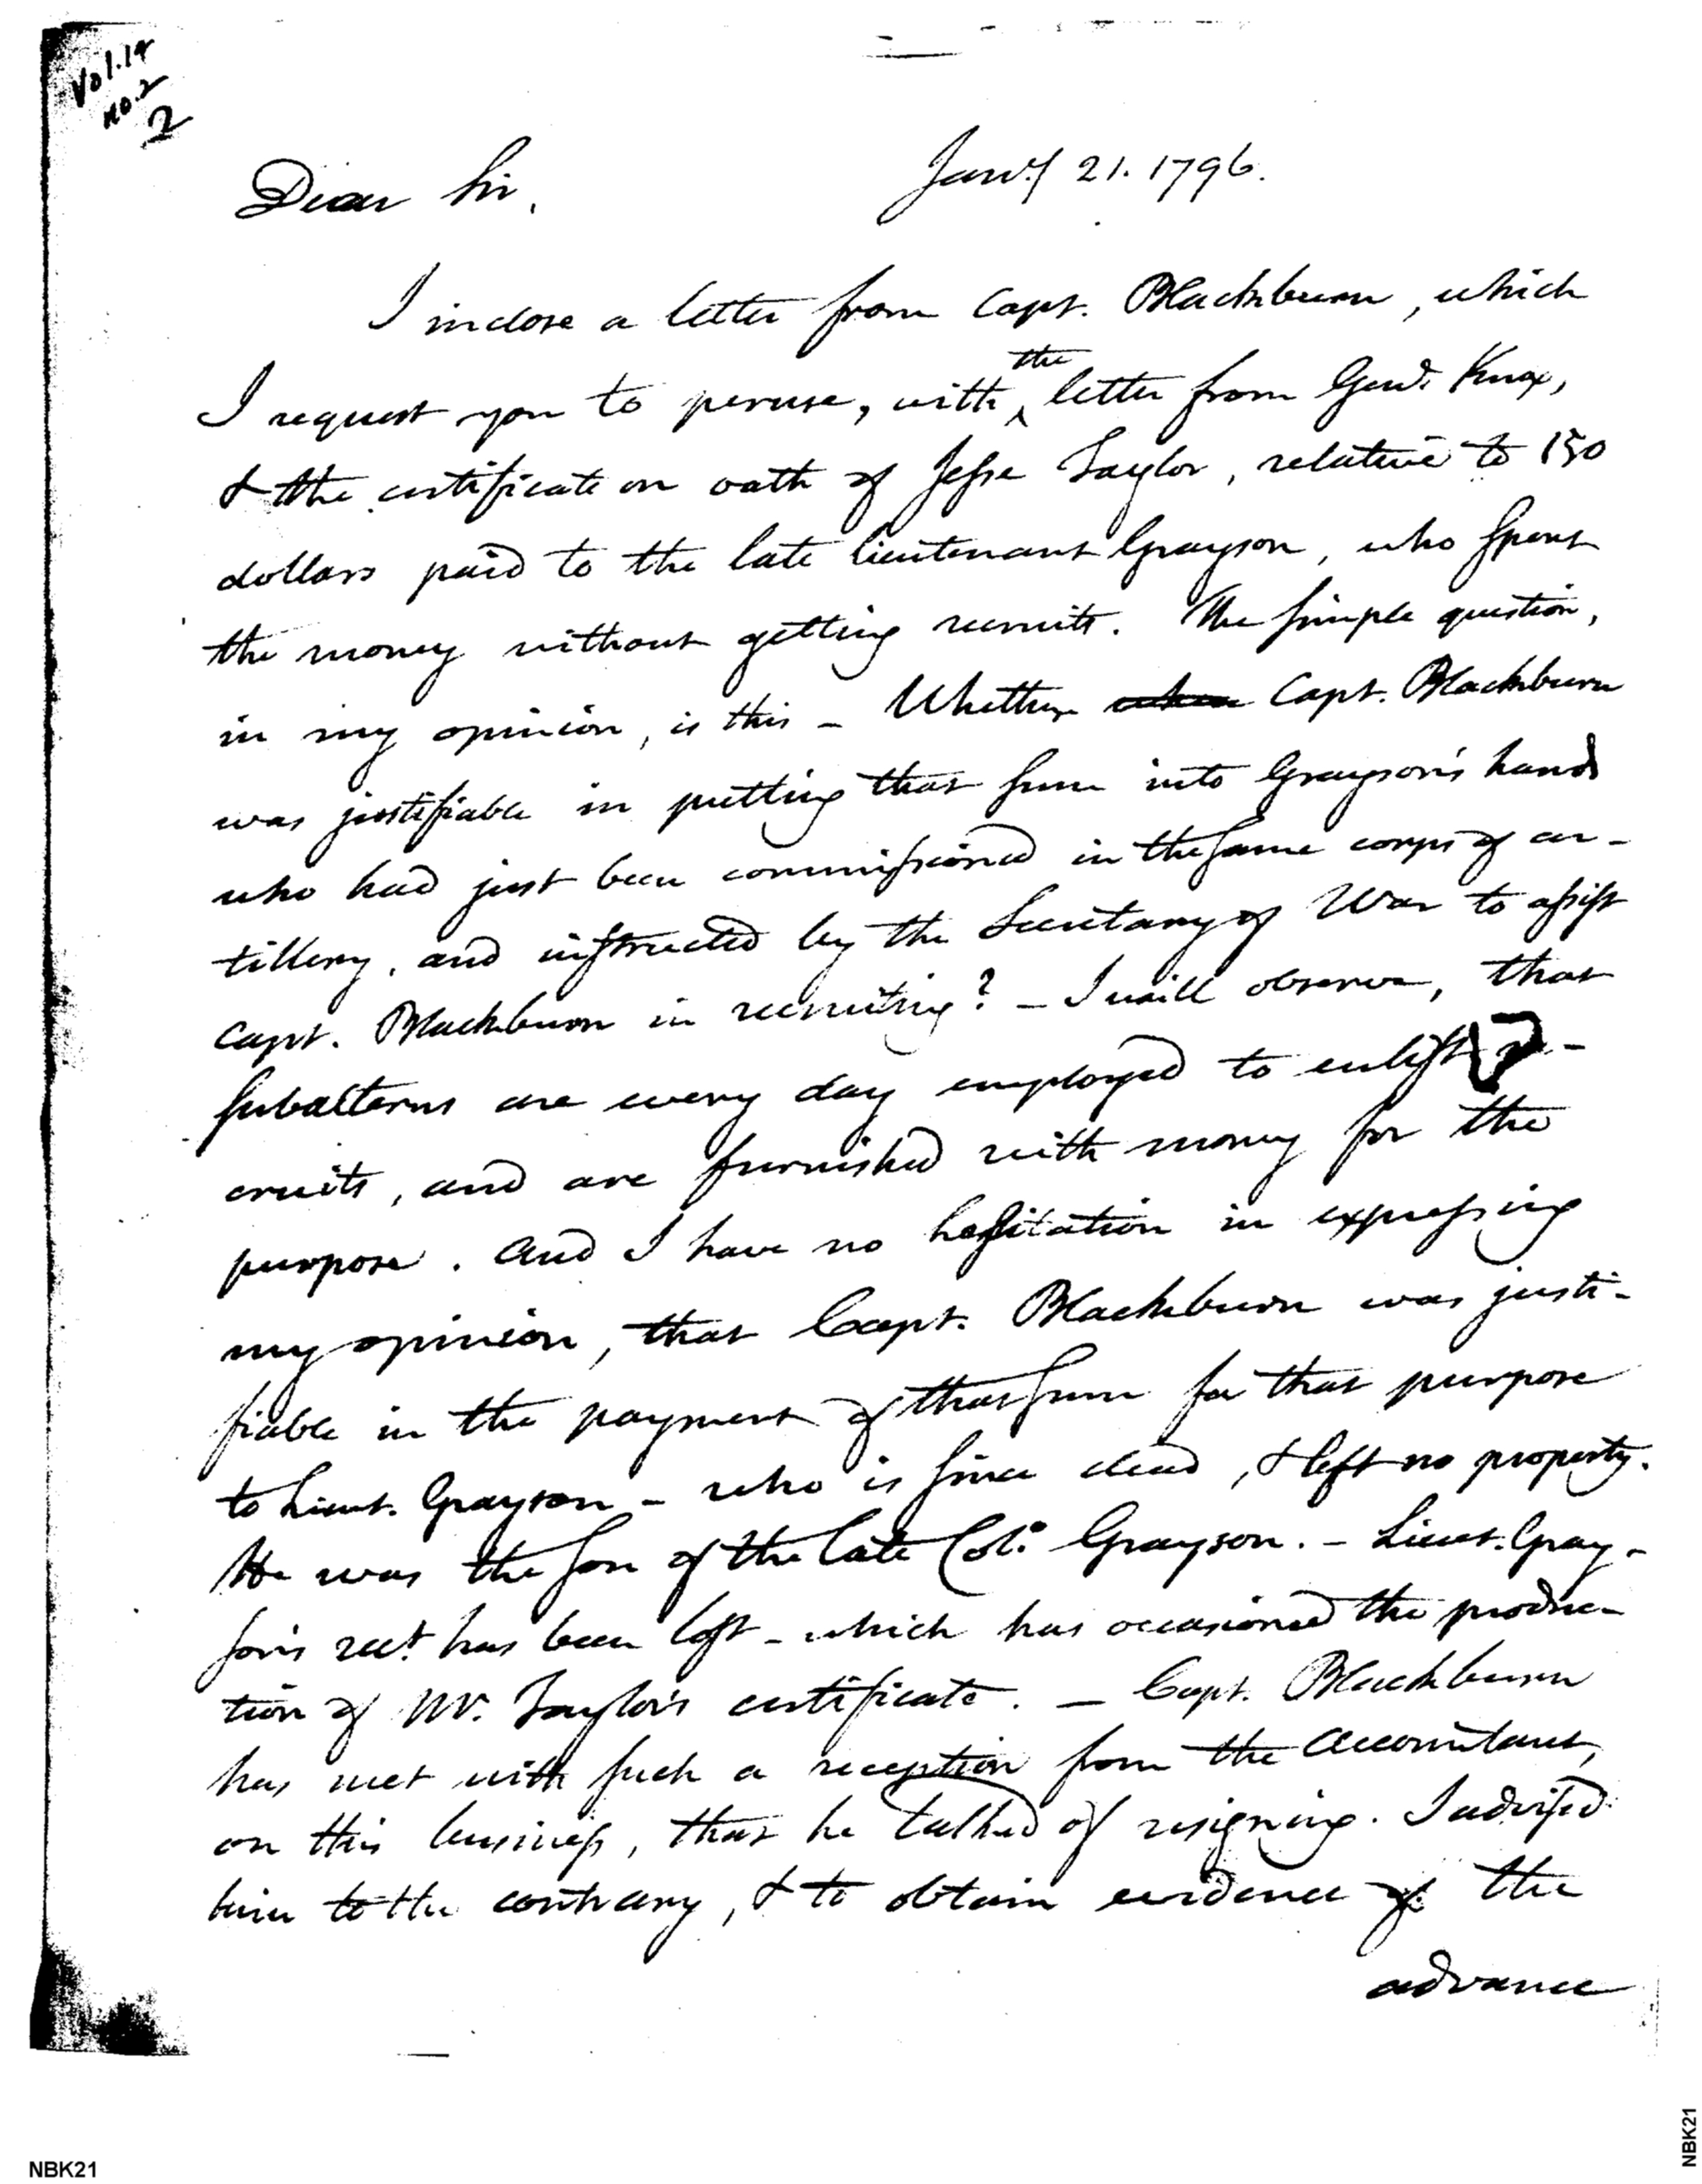 Vol. 19
No. 2
2
Dear Sir,
Jany 21. 1796.
I inclose a letter from Capt. Blackburn, which
the
I request you to peruse, with letter from Genl. Knox,
& the certificate on oath of Jesse Taylor, relative to 150
dollars paid to the late lieutenant Grayson, who spent
the money without getting recruits. The simple question,
in my opinion, is this - Whether Capt. Blackburn
was justifiable in putting that sum into Grayson's hands
who had just been commissioned in the same corps of ar-
tillery, and instructed by the Secretary of War to assist
Capt. Blackburn in recruiting? - I will observe, that
subalterns are every day employed to enlist re-
cruits, and are furnished with money for the
purpose. And I have no hesitation in expressing
my opinion, that Capt. Blackburn was justi-
fiable in the payment of that sum for that purpose
to Lieut. Grayson - who is since dead, & left no property.
He was the son of the late Col. Grayson. - Lieut. Gray-
son's rect. has been lost - which has occasioned the produc-
tion of Mr. Taylor's certificate. - Capt. Blackburn
has met with such a reception from the Accountant,
on this business, that he talked of resigning. I advised
him to the contrary, & to obtain evidence of the
advance
NBK21
NBK21